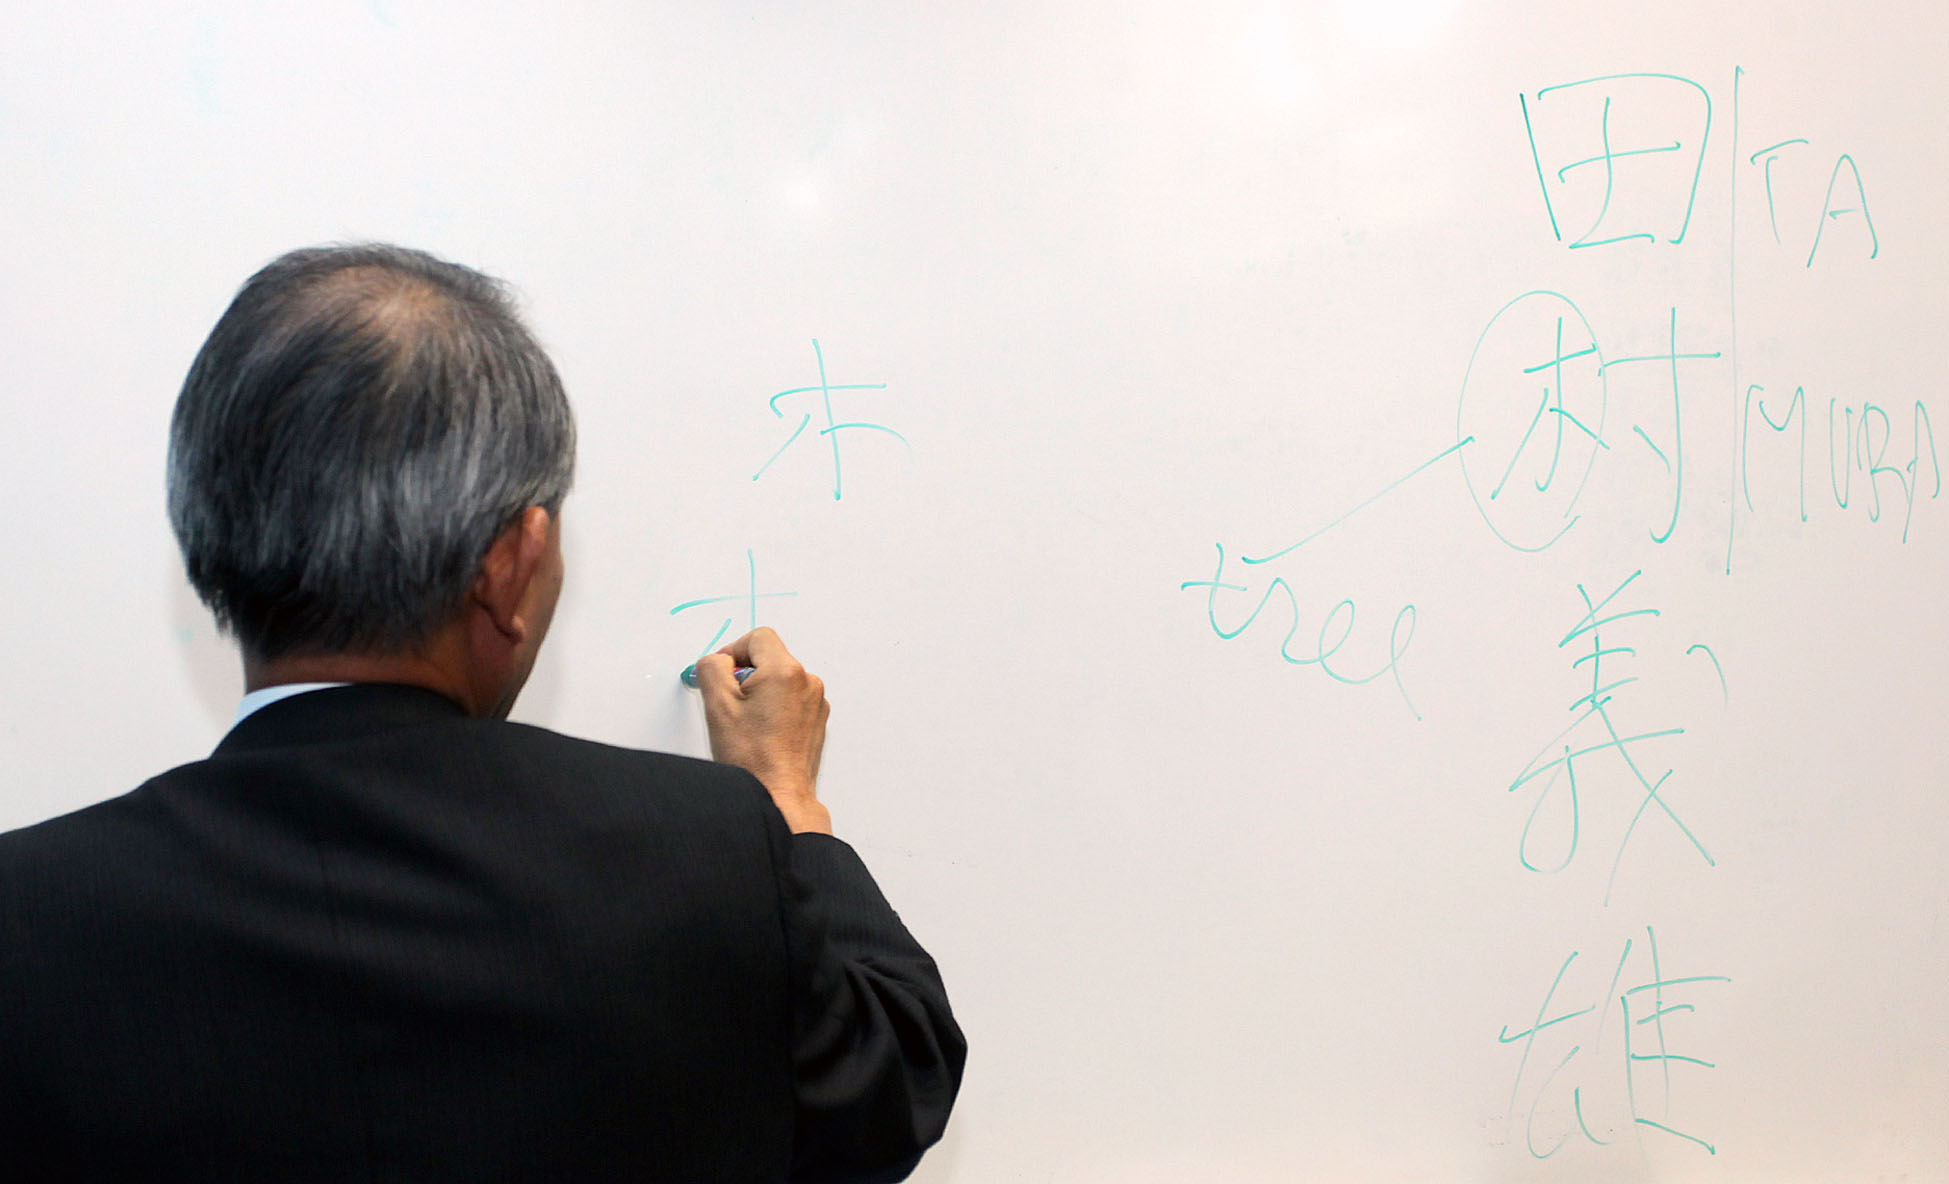 田村義雄
TA
MURA
tree
木
木